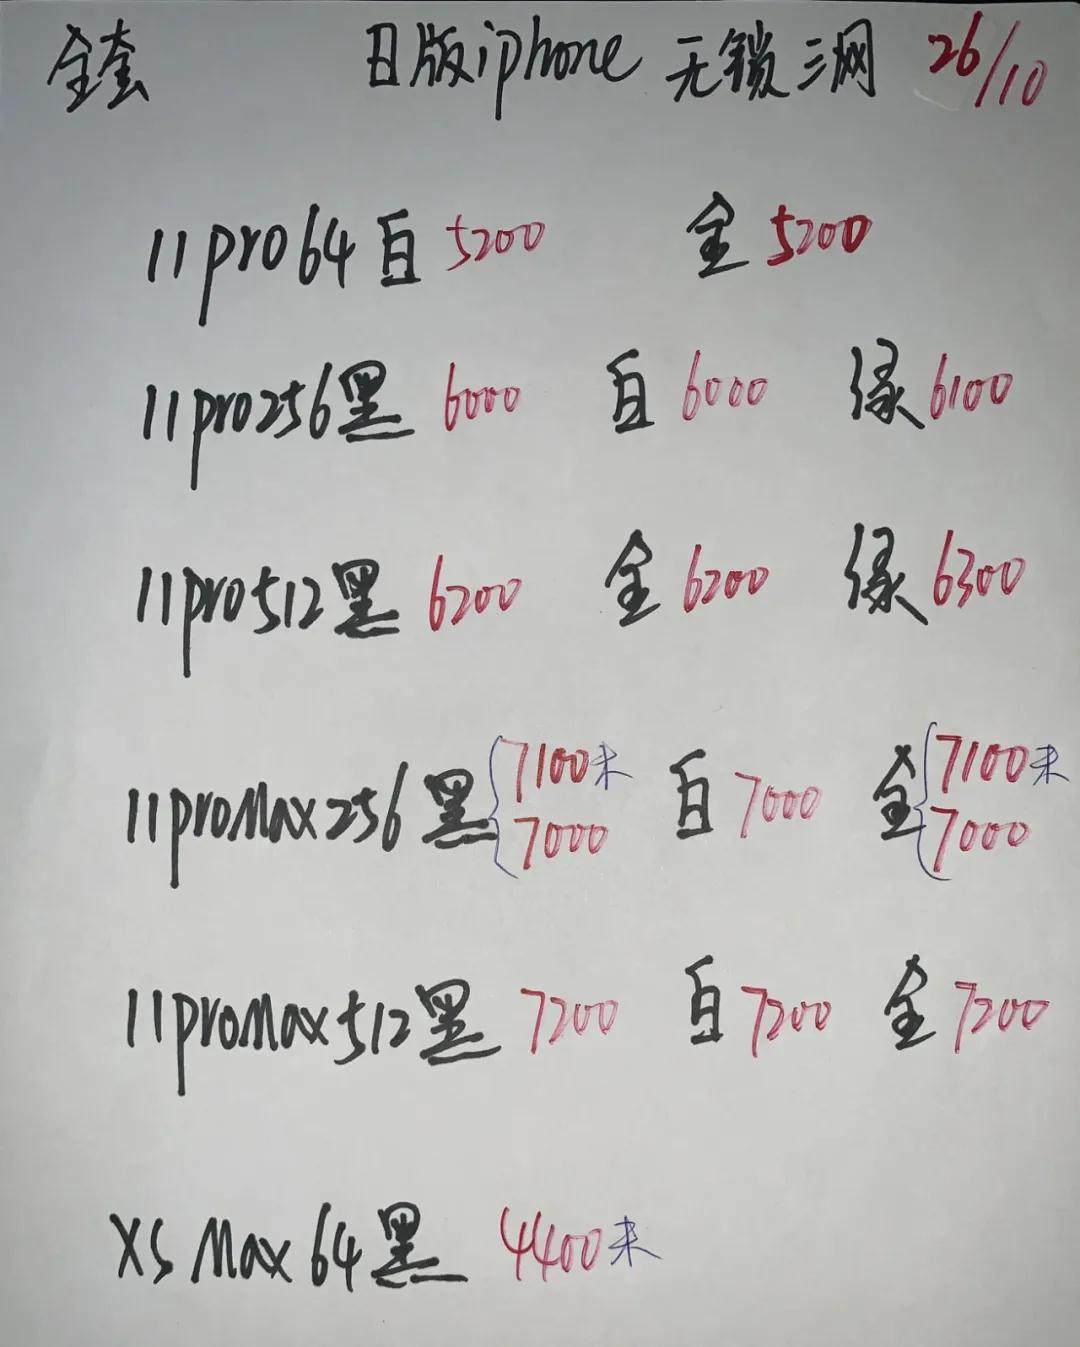 全套 日版iphone 无锁三网 26/10
11pro64白5200 金5200
11pro256黑6000 白6000 绿6100
11pro512黑6200 金6200 绿6300
11proMax256黑{7100未 白7000 金{7100未
7000 7000
11proMax512黑7200 白7200 金7200
XS Max 64黑 4400未